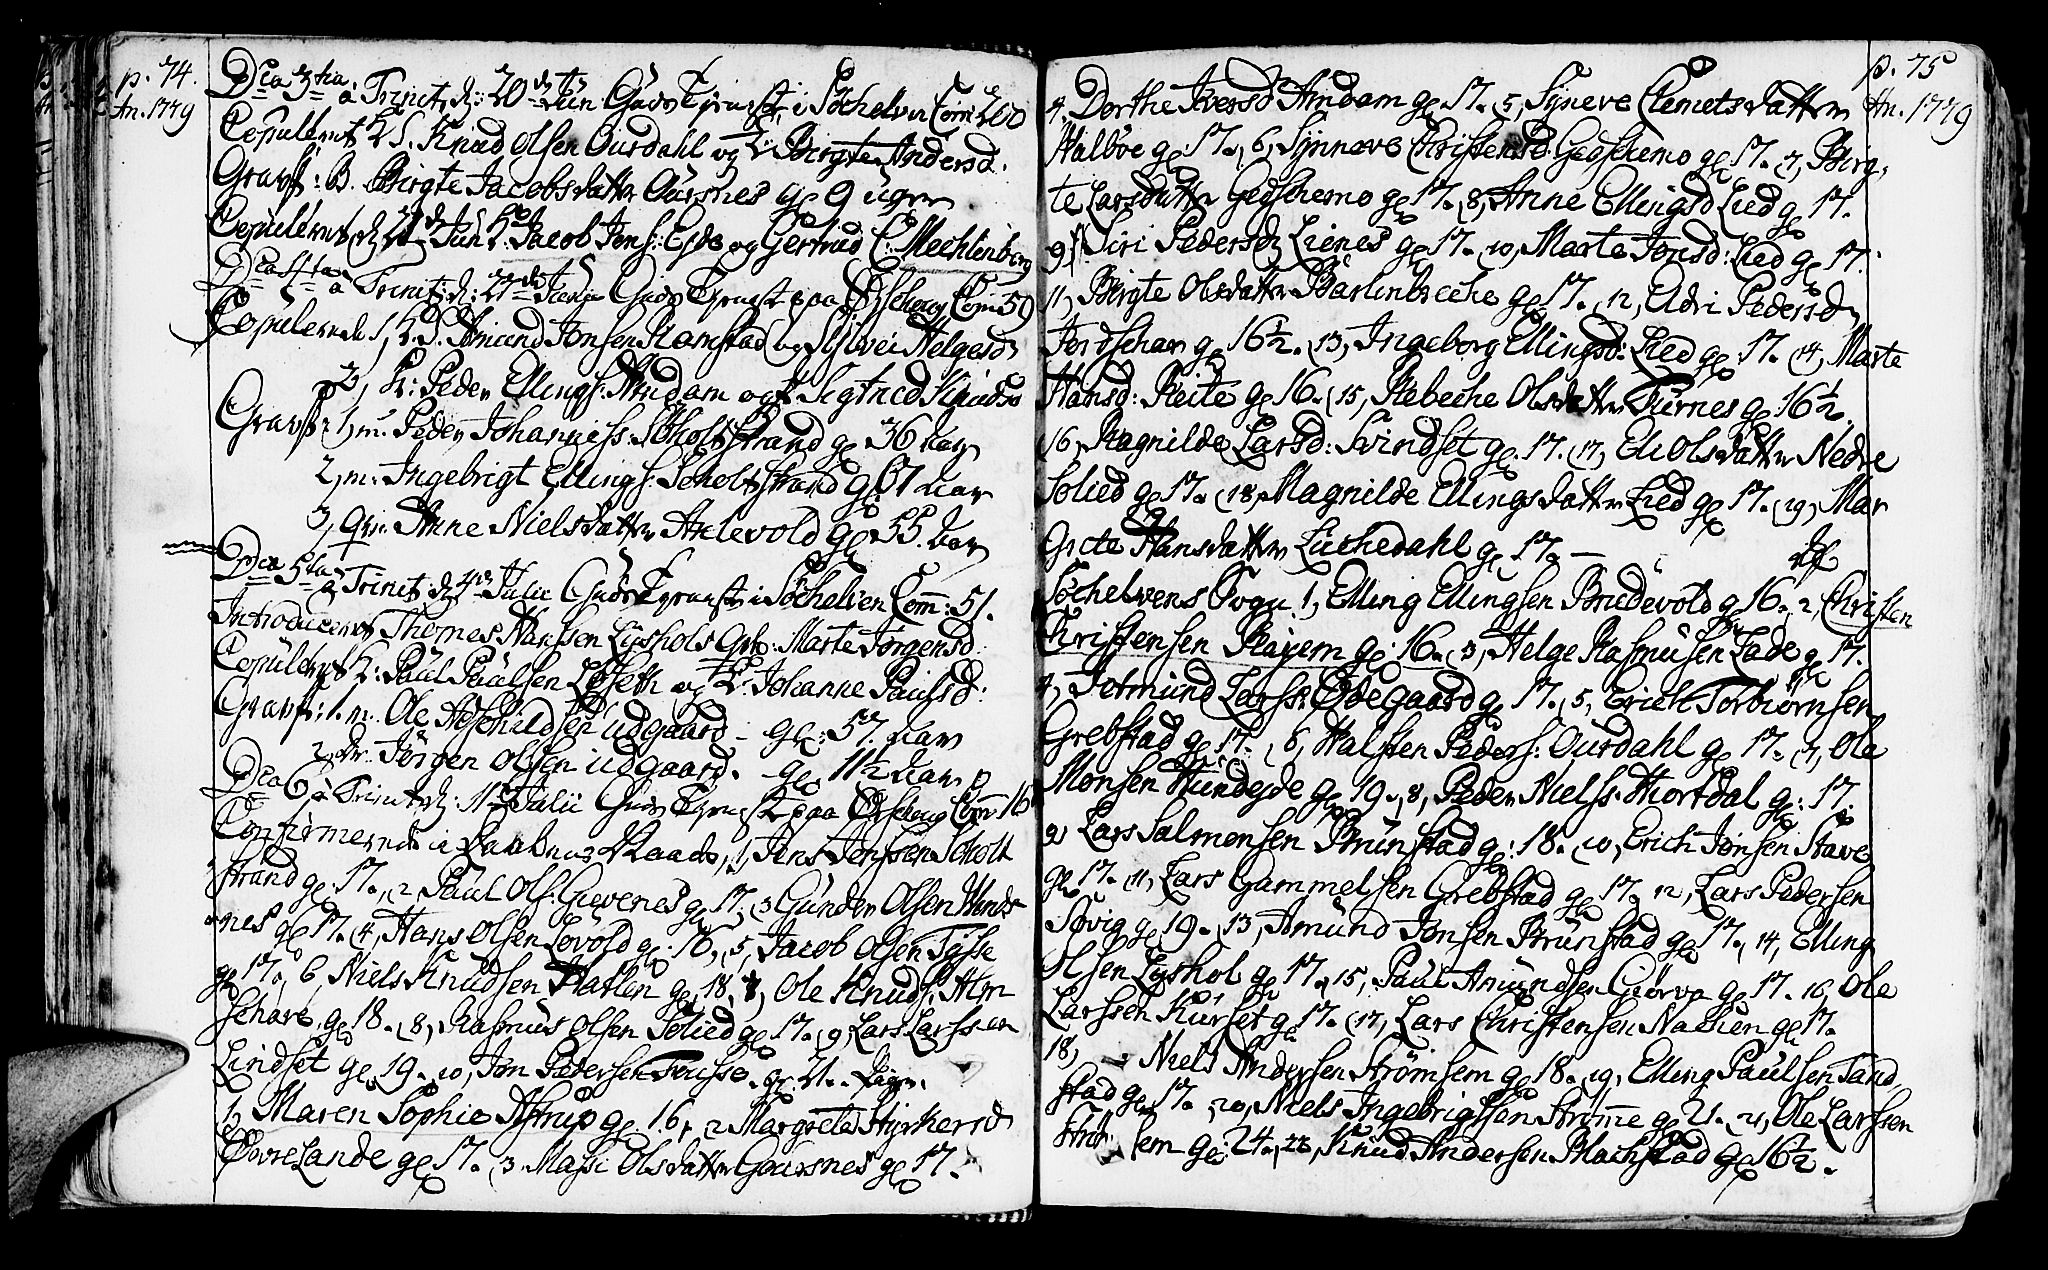 p. 74.
An. 1779
Dca 3tia à Trinit: d: 20de Jun Guds Tjenest i Söchelven Com: 200
Copulerut K S. Knud Olsen Ourdahl og Birgte Andersd.
Gravf: B. Birgte Jacobsdatter Aursnes gl 9 uger
Copulerut d 21de Jun K. Jacob Jons: Eide og Gertrud C: Mechlenborg
Dca 4ta à Trinit: d: 27de Junii Guds Tjenest paa Ørschoug Com: 59
Copulerede 1, K. S. Amund Jonsen Ramstad og Sylvei Helgesd
2, K: Peder Ellings: Amdam og Sigtned Knudsd
Gravf: 1, m. Peder Johanness: Scholtstrand gl 36 aar
2, m: Ingebrigt Ellings: Scholtstrand gl 61 aar
3, qv: Anne Nielsdatter Anlevold gl 55. aar
Dca 5ta à Trinit: d 4de Julii Guds Tjenest i Söchelven Com: 51.
Introducerut Thomes Hanssen Lyshols qv: Marte Jörgensd:
Copulerut K: Paul Paulsen Löseth og Johanne Paulsd:
Gravf: 1. m. Ole Aschildsen udgaard - gl: 57. aar
2, dr. Jörgen Olsen udgaard. - gl. 11½ aar
Dca 6 à Trinit d: 11te Julii Guds Tjenest paa Ørschoug Com 16
Confirmerede i Raads, 1, Jens Jenssen Scholt
strand gl. 17., 2 Paul Ols: Givenes gl 17, 3 Gunder Olsen Wiids
nes gl 17. (4, Hans Olsen Lövold gl: 16, 5, Jacob Olsen Tysse
gl 17., 6, Niels Knudsen Hatlen gl. 18, 7, Ole Knuds: Alm
schare, gl 18. (8, Rasmus Olsen Solied gl 17. (9, Lars Larssen
Lindset gl 19. 10, Jon Pedersen Tousse gl. 21. Piger.
1, Maren Sophie Astrup gl. 16, 2 Margrete Styrkersd
ØvreLande gl 17. (3 Massi Olsdatter Gausnes gl 17.
p. 75
An. 1779
4. Dorthe Iversd Amdam gl 17. (5, Syneve Clemetsdatter
Halboe gl: 17., 6, Synneve Christensd: Gedschemo gl 17. 7, Birg,
te Larsdatter Gedschemo gl 17. (8, Anne Ellingsd Lied gl 17.
9, Siri Pedersd Lienes gl 17. 10, Marte Jonsd: Lied gl 17.
11, Birgte Olsdatter Barlinbreche gl 17. (12, Adri Pedersd
Jordschar gl 16½. (13, Ingeborg Ellingsd: Lied gl 17. (14, Marte
Hansd: Reite gl 16. (15, Rebeche Olsdatter Burnes gl 16½.
16, Ragnilde Larsd: Svindset gl. 17. (17, Eli Olsdatter Nedre
Solied gl 17. (18, Magnilde Ellingsdatter Lied gl 17. (19, Mar
Grete Hansdatter Luchedahl gl 17. - af
Söchelvens Sogn 1, Elling Ellingsen Brudevold gl 16., 2, Christen
Christensen Rayem gl: 16. (3, Helge Rasmusen Lade gl 17.
4, Tormund Larss: Ødegaard gl 17. (5, Erich Torbiörnsen
Grebstad gl 17. (6, Halsten Peders: Ourdahl gl 17. (7, Ole
Monsen Hundejde gl 19., 8, Peder Niels: Hiortdal gl: 17.
9, Lars Salmonsen Brunstad gl: 18. (10, Erich Jonsen Stave
gl 17. (11, Lars Gammelsen Grebstad gl 17. 12, Lars Pedersen
Søvig gl 19. (13, Amund Jonsen Brunstad gl 17. 14, Elling
Olsen Lyshol gl 17. 15, Paul Amundsen Giörva gl 17. 16, Ole
Larssen Kurset gl 17. (17, Lars Christensen Natlien gl 17.
18, Niels Andersen Strömsem gl 18. 19, Elling Paulsen Tand,
stad gl 17. 20, Niels Ingebrigtsen Strömme gl 21. 21, Ole Larssen
sem gl: 24. 22, Knud Andersen Machstad gl 16½.